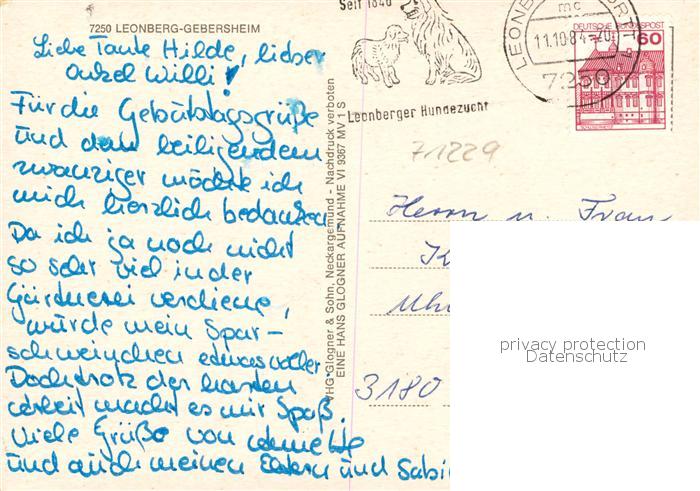 7250 LEONBERG-GEBERSHEIM
Liebe Tante Hilde, lieber
Onkel Willi!
Für die Geburtstagsgrüße
und den beiligendem
zwanziger möchte ich
mich herzlich bedanken,
Da ich ja noch nicht
so sehr viel in der
Gärtnerei verdiene,
würde mein Spar-
schweinchen etwas voller.
Doch trotz der harten
Arbeit macht es mir Spaß.
Viele Grüße von
und auch meinen Eltern und Sabi
VHG Glogner & Sohn, Neckargemünd - Nachdruck verboten
EINE HANS GLOGNER AUFNAHME VI 9367 MV 1 S
Seit 1846
Leonberger Hundezucht
LEONBERG
mc
11.10.84-20
7250
DEUTSCHE BUNDESPOST
60
71229
Herrn u. Frau
K
Uhr
3180
privacy protection
Datenschutz